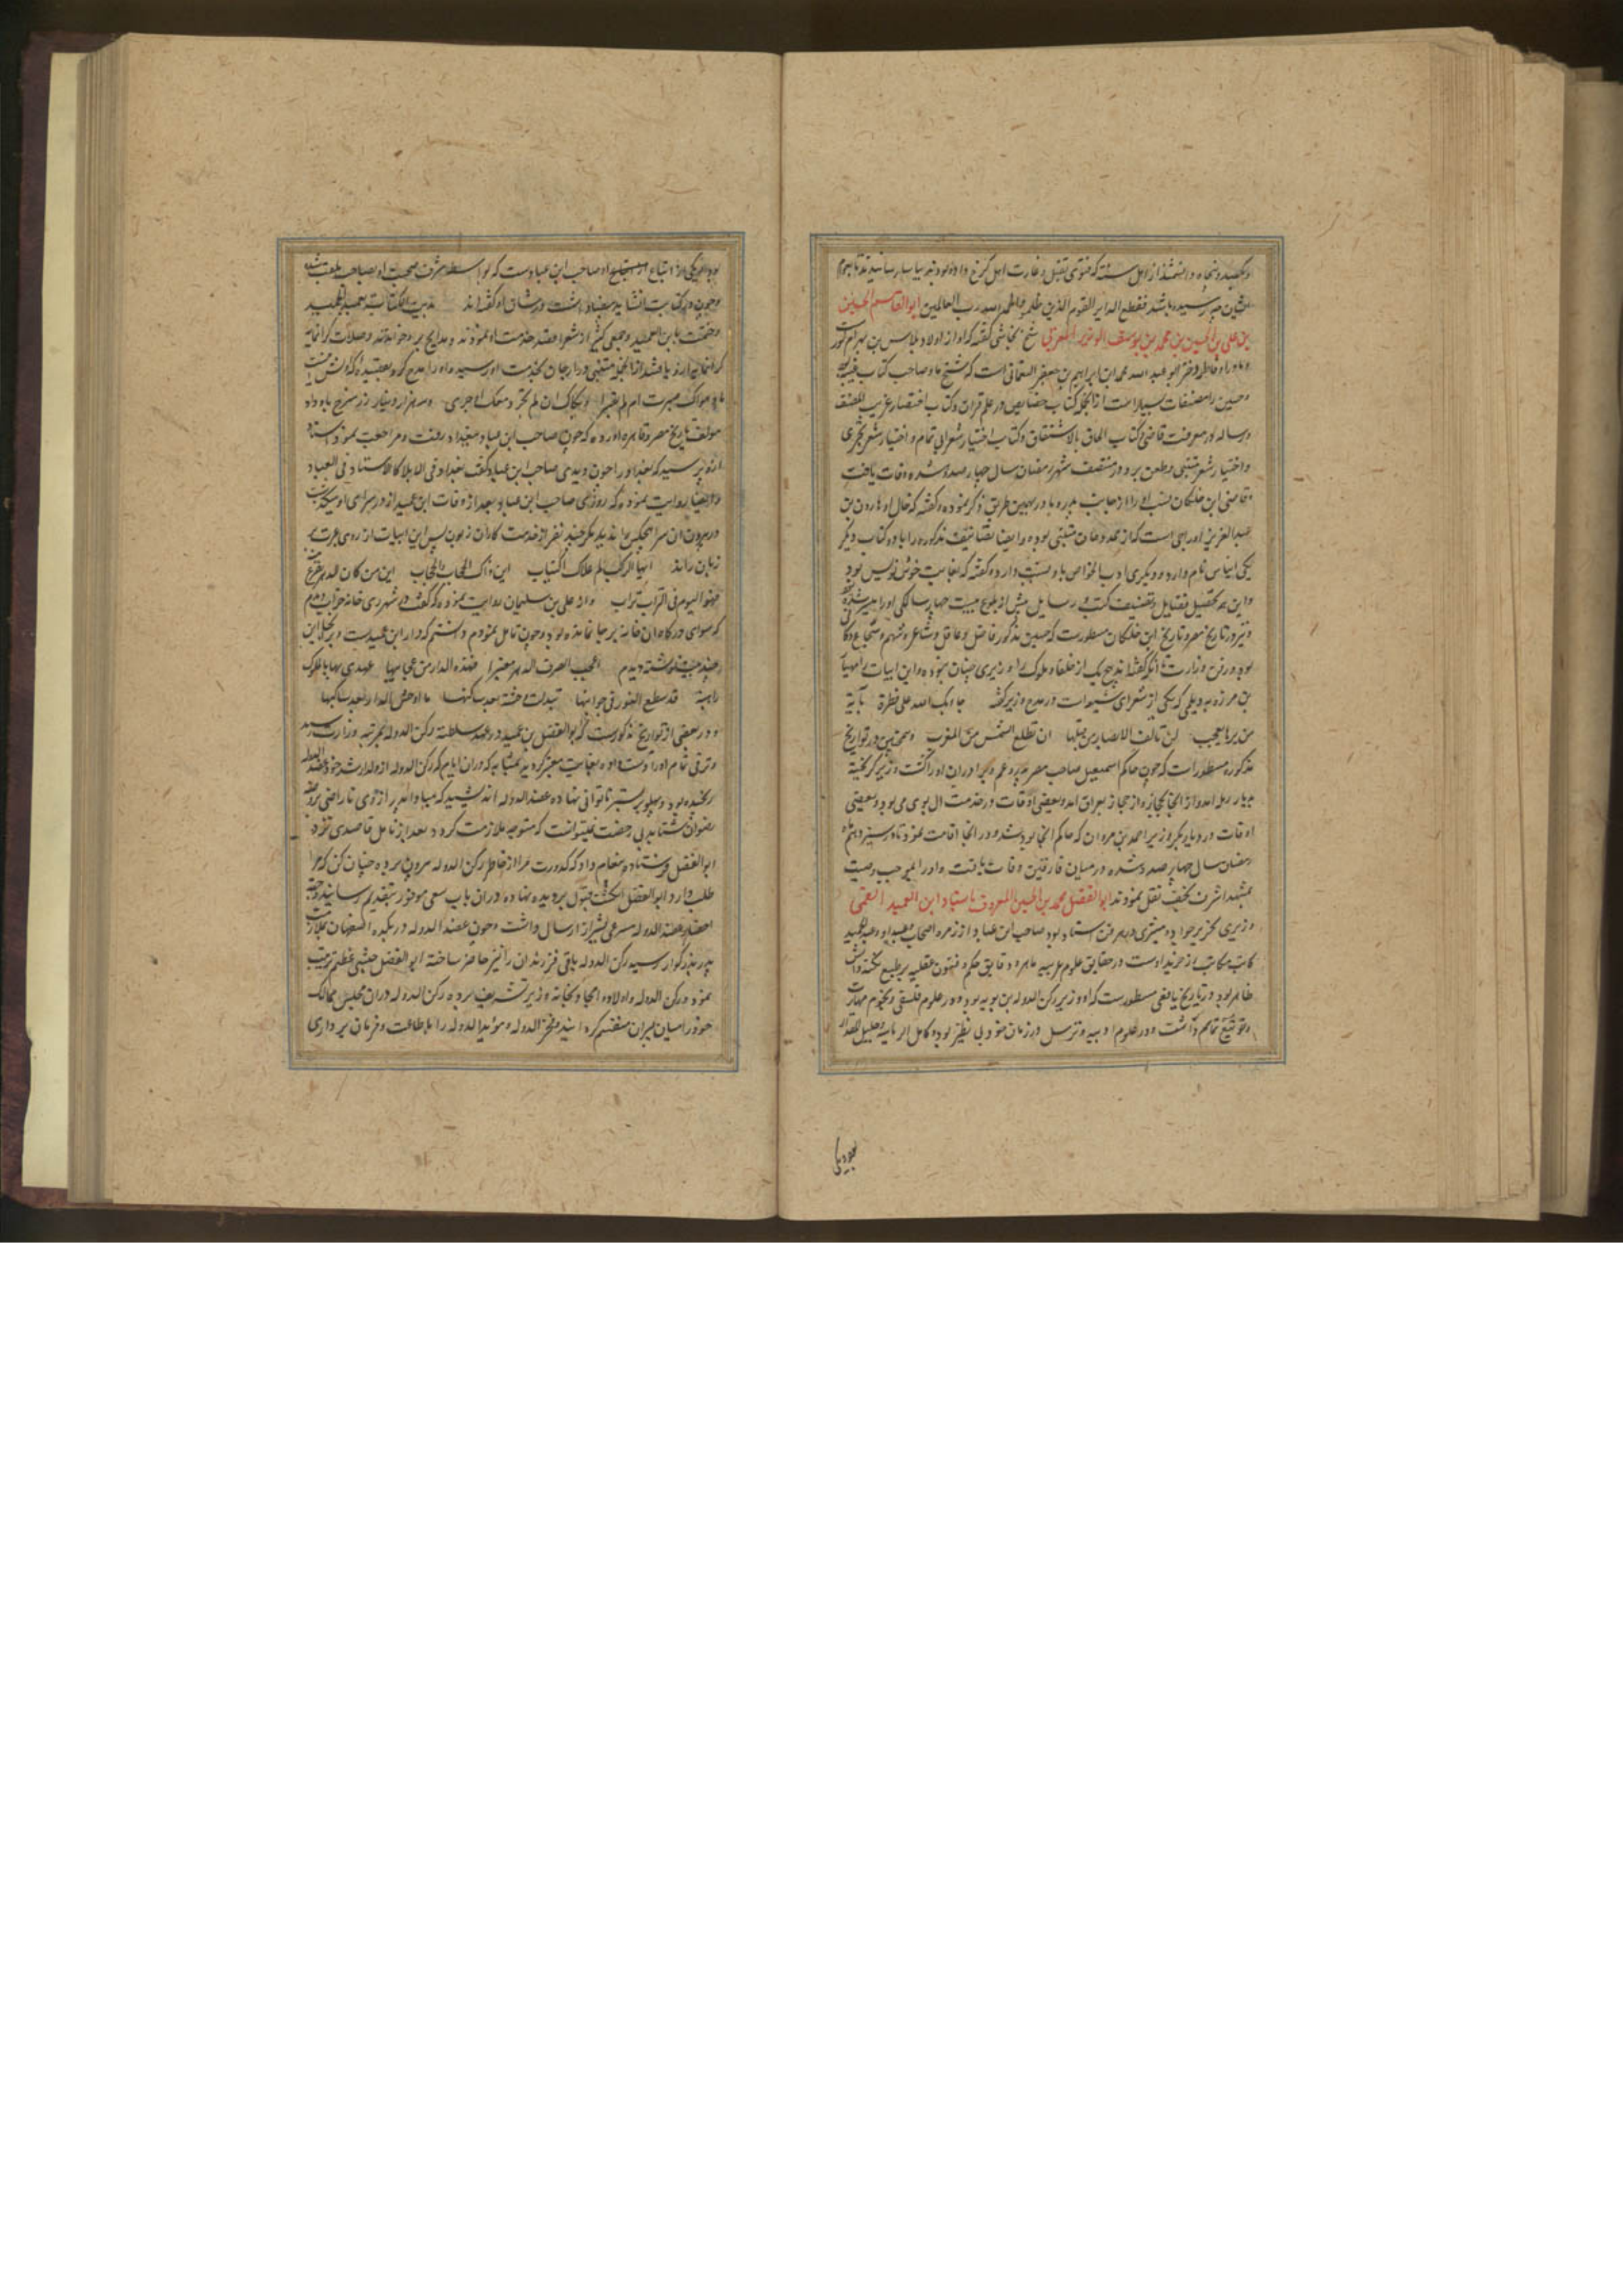 و یکصد و پنجاه دانشمند از اهل سنة که فتوی بقتل و غارت اهل کرخ داده بودند بیاسا رسانیدند تا بهم
ایشان رسیده باشد فقطع دابر القوم الذین ظلموا والحمد لله رب العالمین ابوالقاسم الحسین
بن علی بن الحسین بن محمد بن یوسف الوزیر المغربی شیخ نجاشی گفته که او از اولاد بلاس بن بهرام گور
و مادر او فاطمه دختر ابو عبد الله محمد بن ابراهیم بن جعفر النعمانی است که شیخ ما و صاحب کتاب غیبه
و حسین را مصنفات بسیار است از انجمله کتاب خصایص در علم قران و کتاب اختصار غریب المصنف
و رساله در معرفت قاضی و کتاب الحاق بالاشتقاق و کتاب اختیار شعر ابی تمام و اختیار شعر بحتری
و اختیار شعر متنبی و طعن برو در منتصف شهر رمضان سال چهار صد و شده وفات یافت
و قاضی ابن خلکان نسب او را از جانب پدر و مادر بهمین طریق ذکر نموده و گفته که خال او هارون بن
عبد العزیز اورجی است که از ممدوحان متنبی بوده و ایضا تصانیف مذکوره را باو و کتاب دیگر
یکی ایناس نام دارد و دیگری ادب الخواص باو نسبت داده و گفته که بغایت خوش نویس بود
و این همه تحصیل فضایل و تصنیف کتب و رسایل پیش از بلوغ بیست چهار سالگی او را میسر شده
و نیز در تاریخ مصر و تاریخ ابن خلکان مسطورست که حسین مذکور فاضل و عاقل و شاعر و شهم و شجاع و
بود و در فن وزارت تا انکه گفته‌اند هیچ یک از خلفا و ملوک را وزیری چنان نبوده و این ابیات را مهیار
بن مرزویه دیلمی که یکی از شعرای شیعه است در مدح وزیر گفته جاء بک الله علی فطرة بآیة
من یرها یعجب لن تالف الابصار من قبلها ان تطلع الشمس من المغرب و همچنین در تواریخ
مذکوره مسطور است که چون حاکم اسمعیل صاحب مصر پدر و عم و برادران او را کشت وزیر گریخته
بدیار رمله امد و از انجا بحجاز و از حجاز بعراق امد و بعضی اوقات در خدمت ال بویه می بود و بعضی
اوقات در دیار بکر وزیر احمد بن مروان که حاکم انجا بود شد و در انجا اقامت نمود تا در سیزدهم
رمضان سال چهار صد و شده در میان فارقین وفات یافت و او را بموجب وصیت
بمشهد اشرف نجف نقل نمودند ابوالفضل محمد بن الحسین المعروف باستاد ابن العمید القمی
وزیری نحریر جواد و میسری در هر فن استاد بود صاحب ابن عباد از زمره اصحاب و عبد الحمید
کاتب مکاتب از خریدارست در حقایق علوم عربیه ماهر و دقایق حکم و فنون عقلیه بر طبع نکته دانش
ظاهر بود و در تاریخ یافعی مسطورست که او وزیر رکن الدوله بن بویه بود و در علوم فلسفی و نجوم مهارت
و توسع تمام داشت و در علوم ادبیه و ترسل در زمان خود بی نظیر بود و کامل الریاسه و جلیل المقدار
بود و یکی از اتباع او صاحب ابن عباد است که بواسطه شرف صحبت او بصاحب ملقب شد
و چون در کتابت و انشا ید بیضا داشت در شان او گفته‌اند بدیت الکتابة بعبد الحمید
و ختمت بابن العمید و جمعی کثیر از شعرا قصد خدمت او نمودند و مدایح برو خواندند و صلات گرانمایه
یافتند از انجمله متنبی در ارجان بخدمت او رسید و او را مدح کرد بقصیده که اولش اینست
باد هواک صبرت ام لم تصبرا و بکاک ان لم یجر دمعک او جری و سه هزار دینار زر سرخ باو داد
مولف تاریخ مصر و قاهره اورده که چون صاحب ابن عباد ببغداد رفت و مراجعت نمود استاد
ازو پرسید که بغداد را چون دیدی صاحب ابن عباد گفت بغداد فی البلاد کالاستاد فی العباد
و ایضا روایت نموده که روزی صاحب ابن عباد بعد از وفات ابن عمید از در سرای او میگذشت
در بیرون ان سرا هیچکس را ندید مگر چند نفر از خدمت کاران زبون پس این ابیات از روی عبرت بر
زبان راند ایها الرکب لم علاک اکتیاب این ذاک الحجاب والحجاب این من کان الدهر یفزع
فهو الیوم فی التراب تراب و از علی بن سلیمان روایت نموده که گفت در شهر ری خانه خراب دیدم
که سوای درگاه ان خانه بر جا نمانده بود و چون تامل نمودم دانستم که دار ابن عمیدست و برنجا این
چند بیت نوشته دیدم اعجب لصرف الدهر معتبرا فهذه الدار من عجایبها عهدی بها بالملوک
زاهیة قد سطع النور فی جوانبها تبدلت وحشة بعد ساکنها ما اوحش الدار بعد ساکنها
و در بعضی از تواریخ مذکورست که ابوالفضل بن عمید در عهد سلطنة رکن الدوله بمرتبه وزارت رسید
و ترقی تمام او را دست داده بغایت معتبر گردید بمثابه که دران ایام که رکن الدوله از ولد ارشد خود عضد الدوله
رنجیده بود و پهلو بر بستر ناتوانی نهاده عضد الدوله اندیشید که مبادا پدر از وی ناراضی بروضه
رضوان شتابد بی رخصت نمیتوانست که متوجه ملازمت گردد بعد از تامل قاصدی نزد
ابوالفضل فرستاده پیغام داد که کدورت مرا از خاطر رکن الدوله بیرون برده چنان کن که مرا
طلب دارد ابوالفضل انگشت قبول بر دیده نهاده دران باب سعی موفور بتقدیم رسانید و جهة
احضار عضد الدوله مسرعی بشیراز ارسال داشت و چون عضد الدوله در بلده اصفهان بملازمت
پدر بزرگوار رسید رکن الدوله باقی فرزندان را نیز حاضر ساخته ابوالفضل جشنی عظیم ترتیب
نمود و رکن الدوله و اولاد و امجاد بخانه وزیر تشریف برده رکن الدوله دران مجلس ممالک
خود را میان پسران منقسم گردانید و فخر الدوله و مؤید الدوله را باطاعت و فرمان برداری